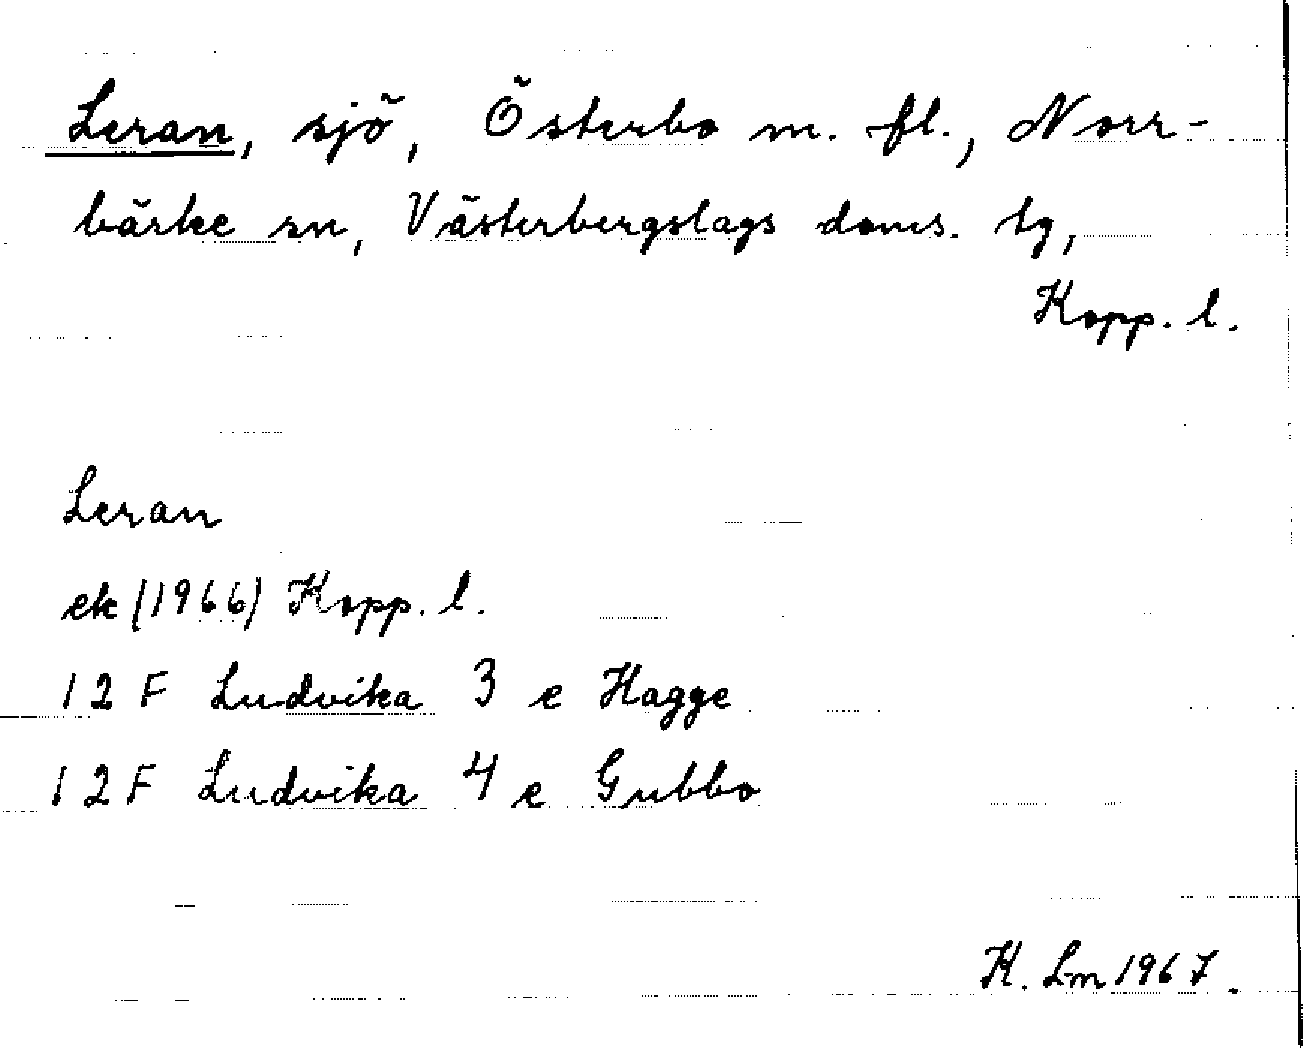 Leran, sjö, Österbo m. fl., Norr-
bärke sn, Västerbergslags doms. tg,
Kopp. l.
Leran
ek (1966) Kopp. l.
12 F Ludvika 3 e Hagge
12 F Ludvika 4 e Gubbo
K. Lm 1967.